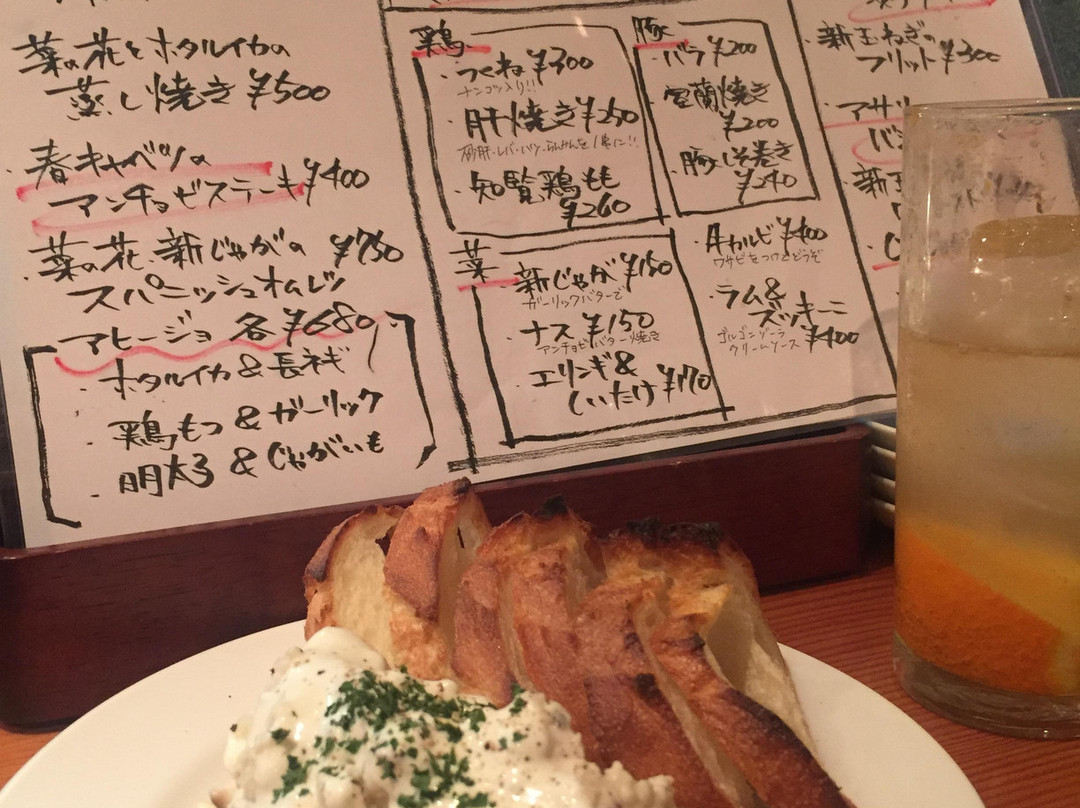 菜の花とホタルイカの
蒸し焼き ¥500
・春キャベツの
アンチョビステーキ ¥400
・菜の花、新じゃがの ¥750
スパニッシュオムレツ
アヒージョ 各¥680
・ホタルイカ&長ネギ
・鶏もつ&ガーリック
・明太子&じゃがいも
鶏
・つくね ¥300
ナンコツ入り!!
・肝焼き ¥250
・知覧鶏もも
¥260
菜
・新じゃが ¥150
ガーリックバターで
・ナス ¥150
アンチョビバター焼き
・エリンギ&
しいたけ ¥170
豚
・バラ ¥200
・室蘭焼き
¥200
・豚しそ巻き
¥240
・牛カルビ ¥400
ワサビをつけてどうぞ
・ラム&
ズッキーニ
¥400
ゴルゴンゾーラ
クリームソース
・新玉ねぎの
フリット ¥300